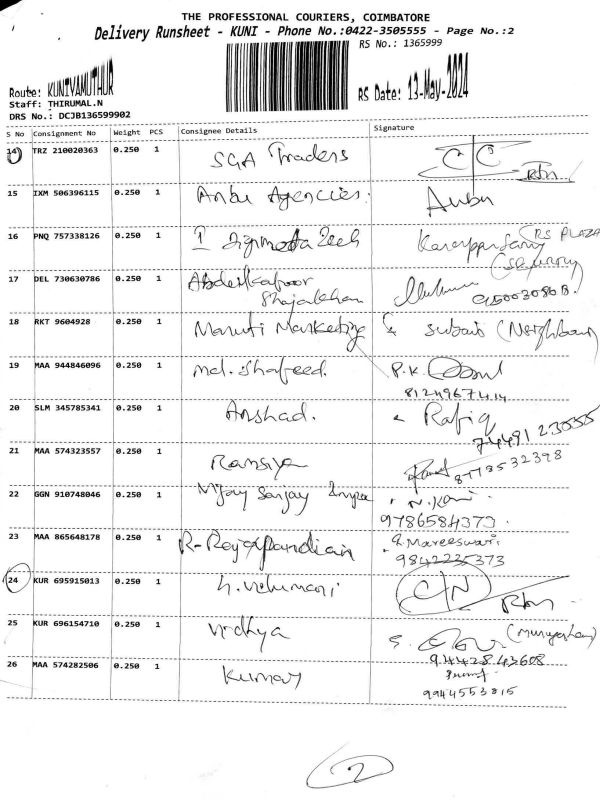 THE PROFESSIONAL COURIERS, COIMBATORE
Delivery Runsheet - KUNI - Phone No.:0422-3505555 - Page No.:2
RS No.: 1365999
Route: KUNIYAMUTHUR
RS Date: 13-May-2024
Staff: THIRUMAL.N
DRS No.: DCJB136599902
S No Consignment No Weight PCS Consignee Details Signature
14 TRZ 210020363 0.250 1 SGA Traders C/C Rtn
15 IXM 506396115 0.250 1 Anbu Agencies. Anbu
16 PNQ 757338126 0.250 1 RS PLAZA
(Security)
17 DEL 730630786 0.250 1 Abdulkafoor
Shajakhan
18 RKT 9604928 0.250 1 Maruti Marketing (Neighbour)
19 MAA 944846096 0.250 1 md. Shafeed. P.K.
8124967414
20 SLM 345785341 0.250 1 Arshad. Rafiq
21 MAA 574323557 0.250 1 Ramsiya 8778532398
22 GGN 910748046 0.250 1 Vijay Sanjay N. Kani
9786584373.
23 MAA 865648178 0.250 1 R-Rajapandian Mareeswari
9842235373
24 KUR 695915013 0.250 1 C/N Rtn
25 KUR 696154710 0.250 1 Vidhya (Murugeshan)
9442843608
26 MAA 574282506 0.250 1 Kumar
9944553815
2